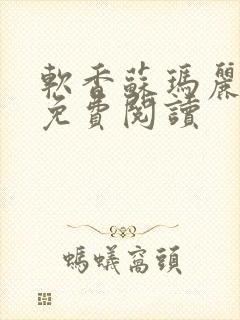 軟香蘇瑪麗
免費閱讀
螞蟻窩頭